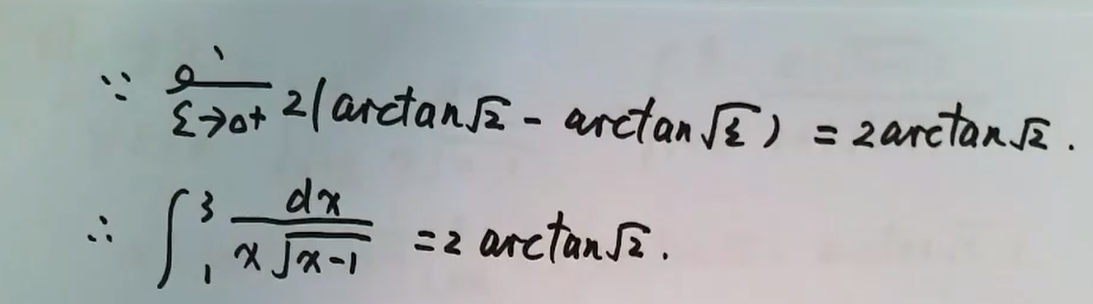 ∵ lim ε→0+ 2(arctan√2 - arctan√ε) = 2arctan√2.
∴ ∫₁³ dx / (x√(x-1)) = 2 arctan√2.